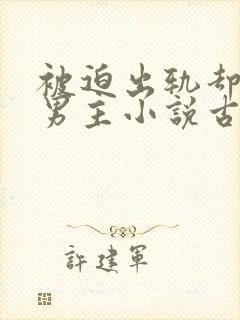 被迫出轨却
男主小說古
許建軍